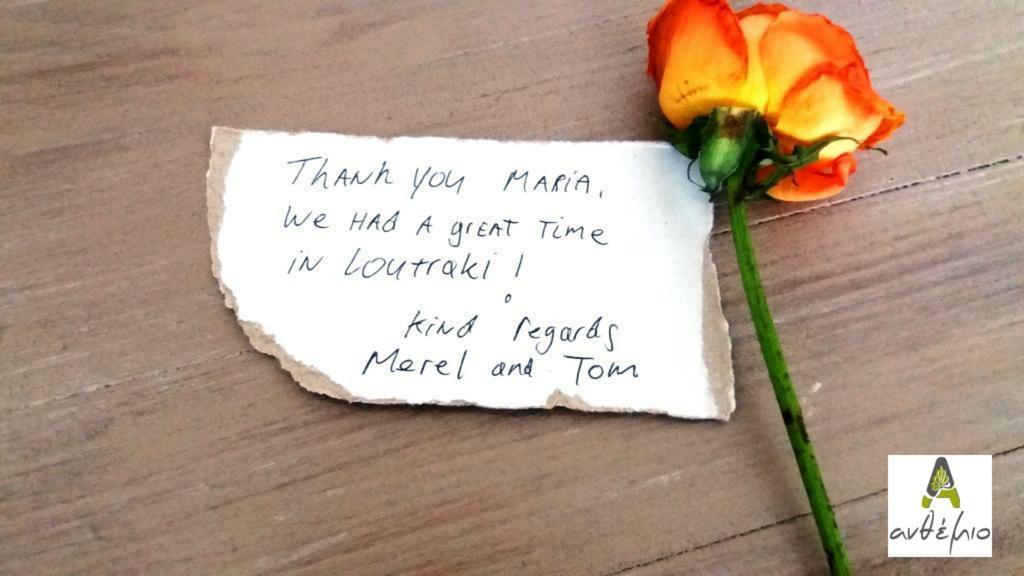 Thank you Maria,
We had a great time
in Loutraki!
Kind regards
Merel and Tom
ανθέμιο